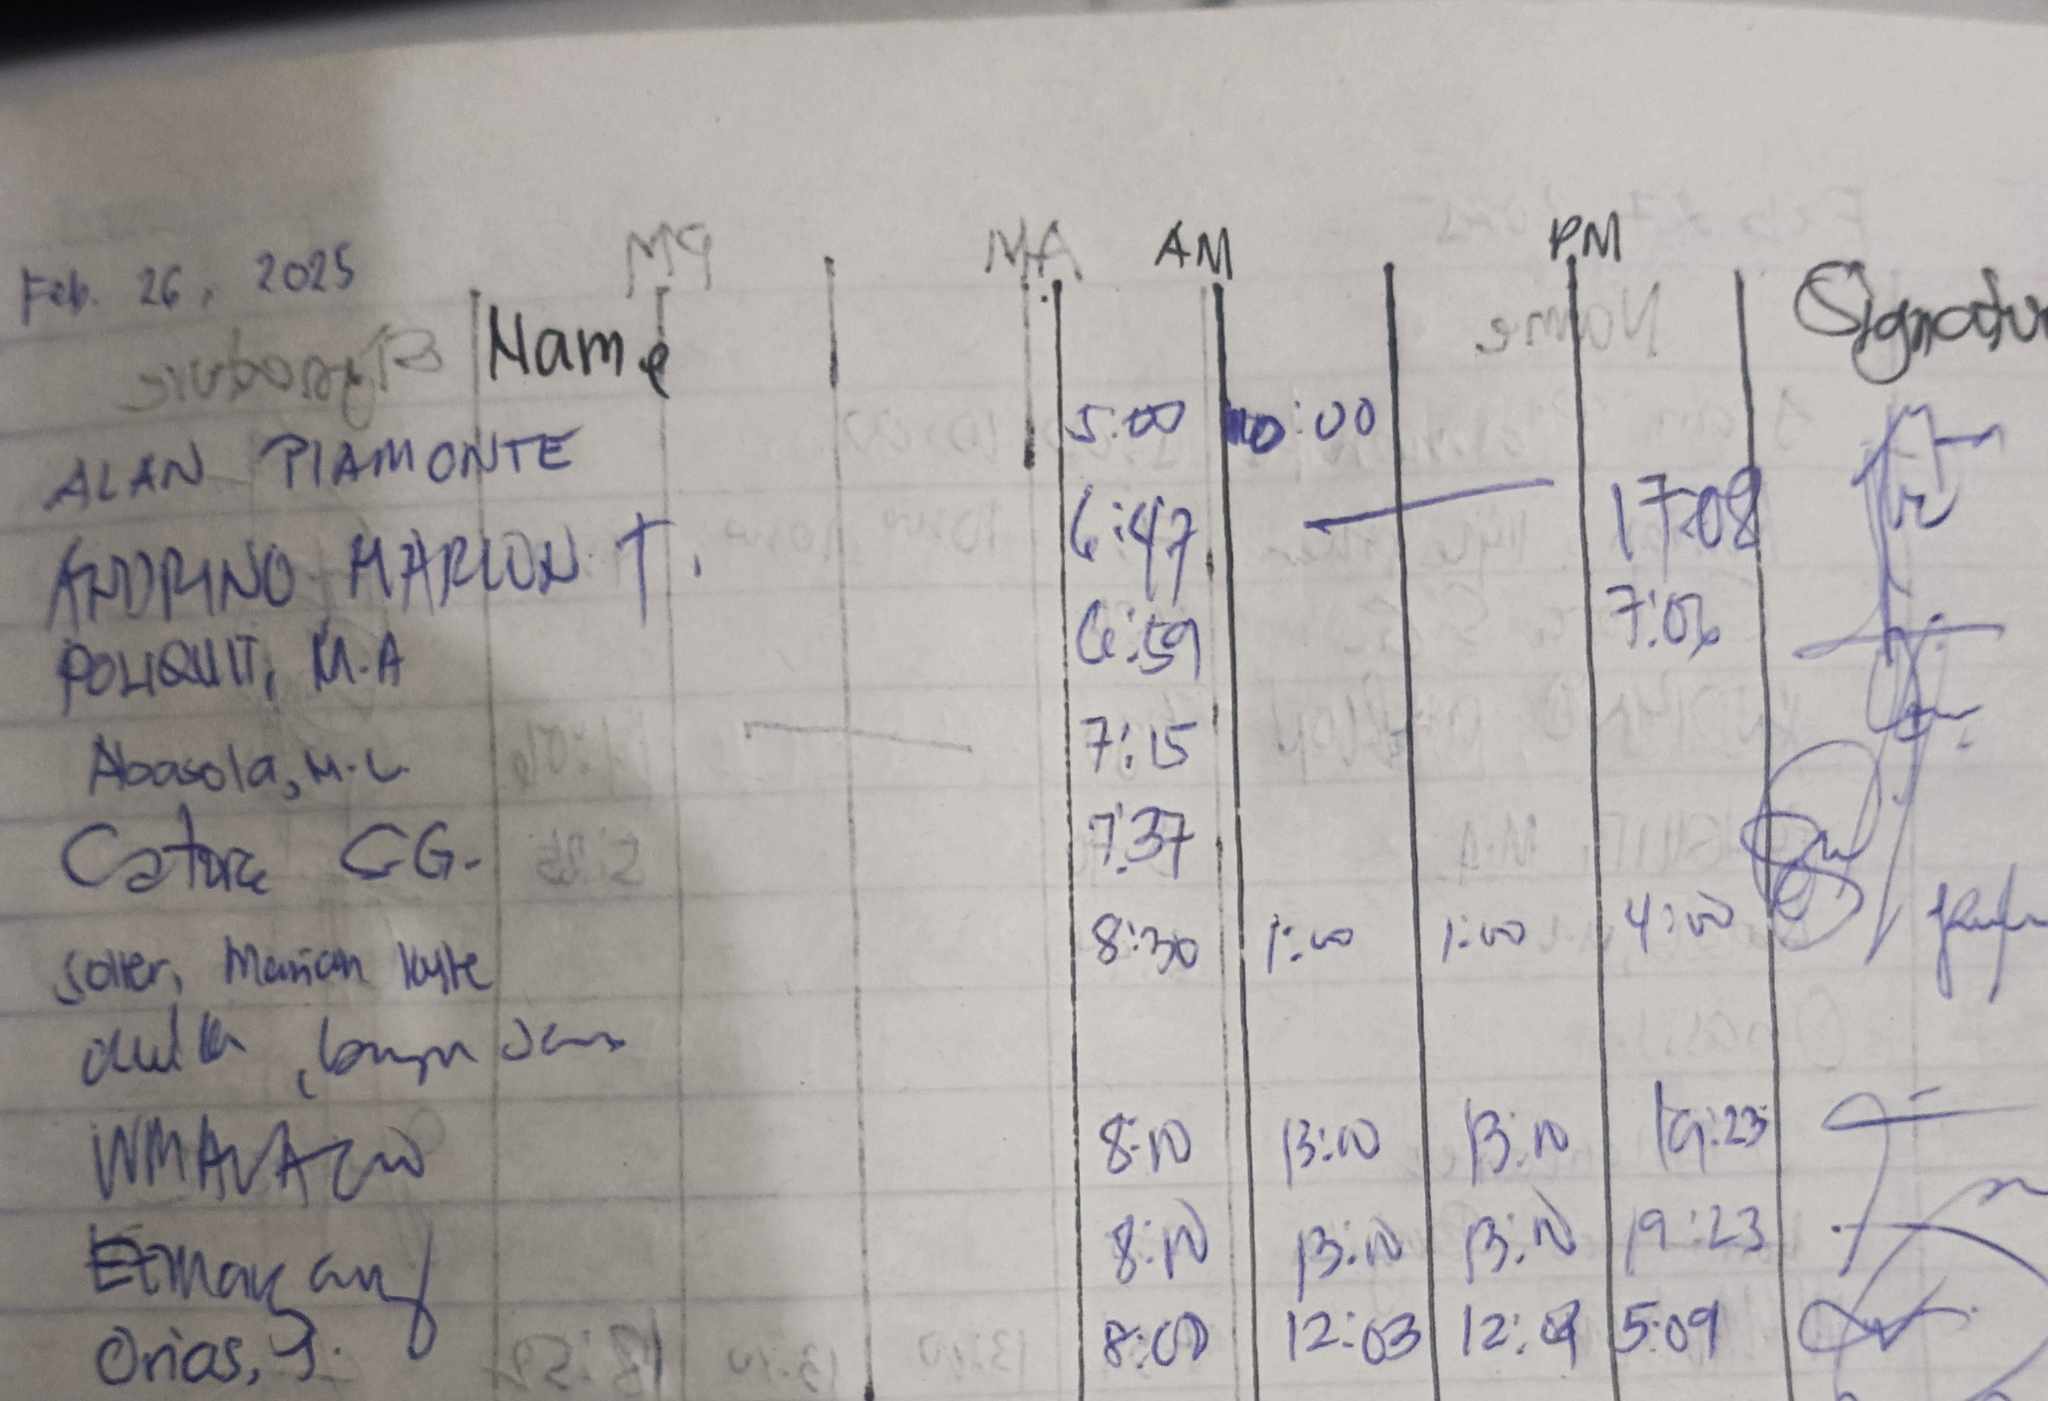 AM PM
Feb. 26, 2025
Name Signatur
ALAN PIAMONTE 5:00 10:00
ANDRINO MARLON T. 6:47 17:08
POLIQUIT, M.A 6:59 7:06
Abasola, M.L. 7:15
Catore CG. 7:37
Soller, Marian Kyle 8:30 1:00 1:00 4:00
8:10 13:10 13:10 19:23
8:10 13:10 13:10 19:23
Orias, J. 8:00 12:03 12:09 5:09